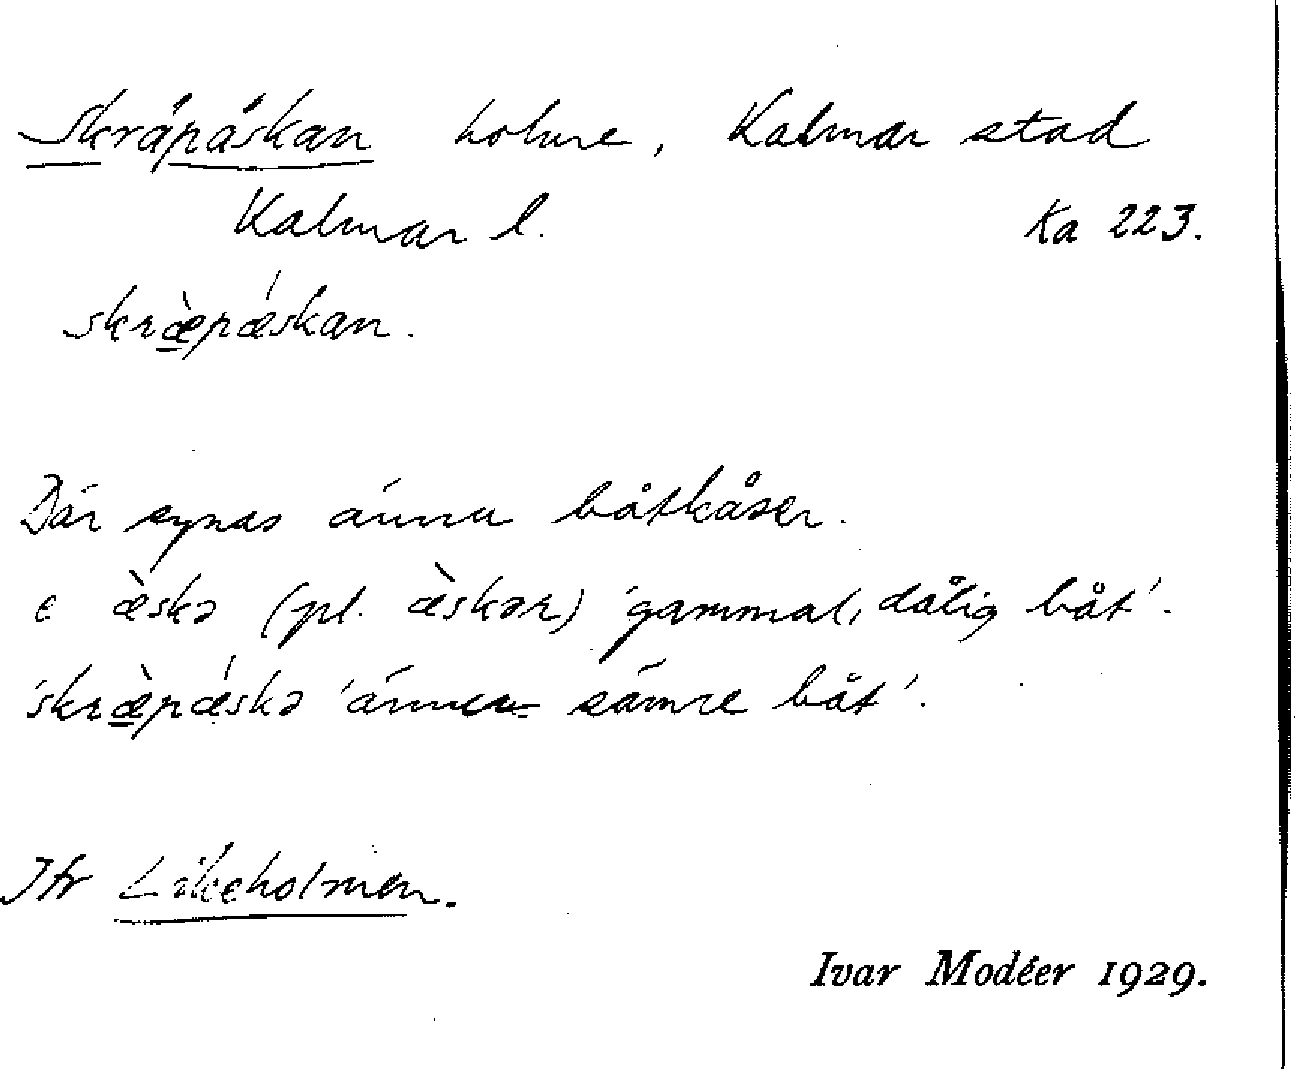 Skräpäskan holme, Kalmar stad
Kalmar l. Ka 223.
skræ̀pǽskan.
Där synas ännu båtkåser.
e æ̀skə (pl. æ̀skər) 'gammal, dålig båt'.
skræ̀pǽskə 'ännu sämre båt'.
Itr Likeholmen.
Ivar Modéer 1929.